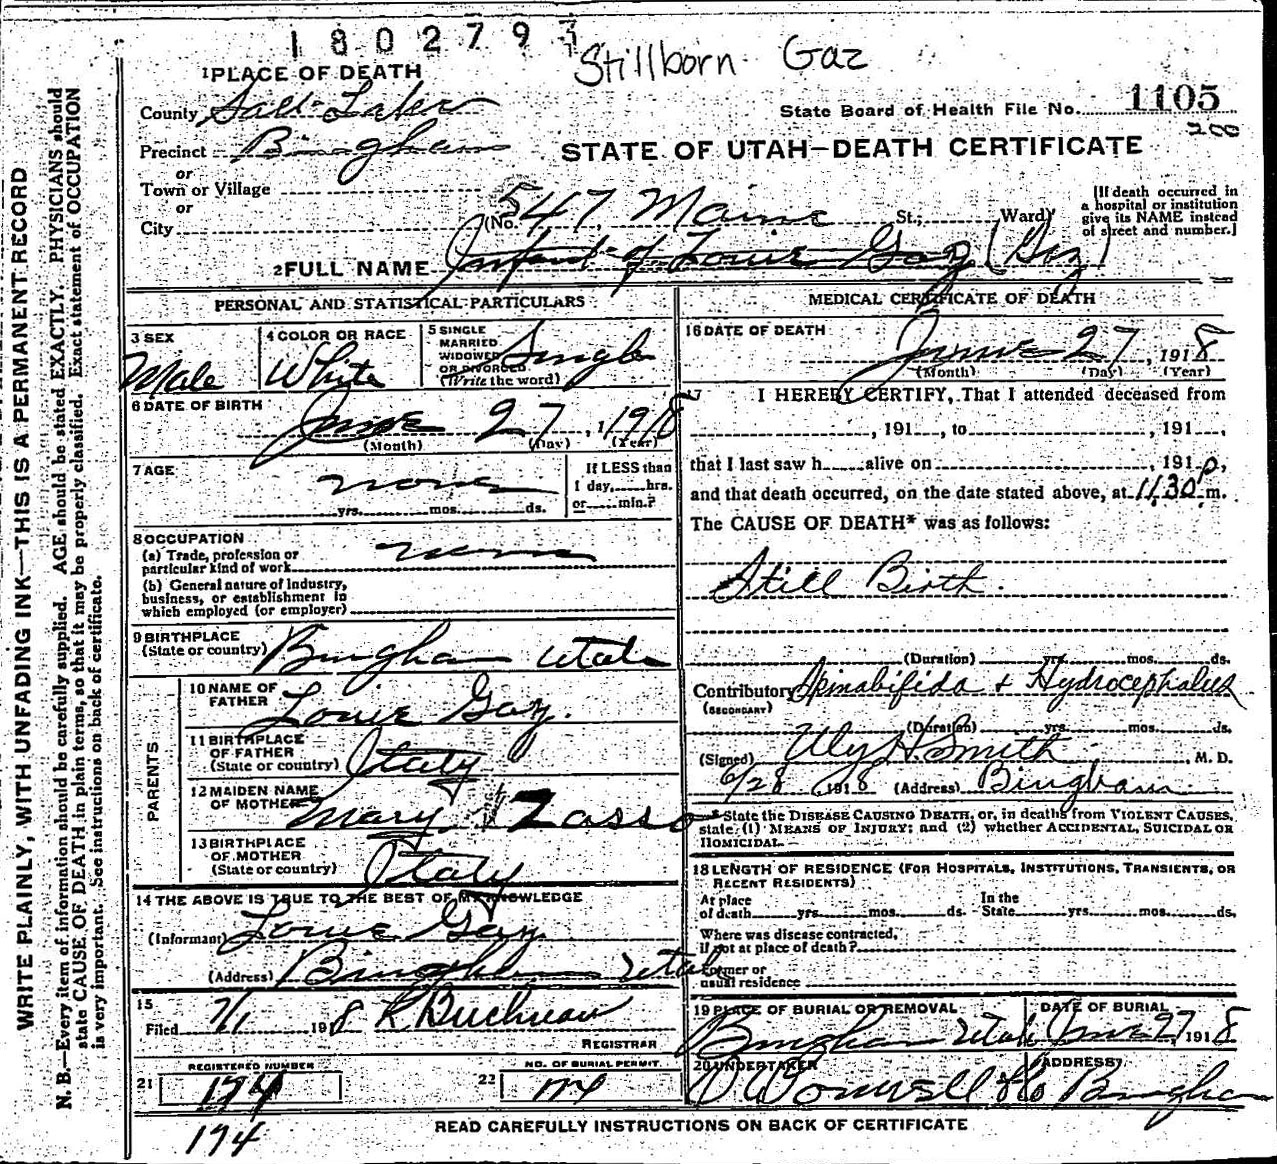 1802793
Stillborn Gaz
1 PLACE OF DEATH
County Salt Lake
State Board of Health File No. 1105
Precinct Bingham
STATE OF UTAH—DEATH CERTIFICATE
or
Town or Village
or
City
(No. 547 Main St.; Ward)
[If death occurred in
a hospital or institution
give its NAME instead
of street and number.]
2 FULL NAME Infant of Louie Gaz (Gaz)
PERSONAL AND STATISTICAL PARTICULARS
3 SEX
Male
4 COLOR OR RACE
White
5 SINGLE
MARRIED
WIDOWED
OR DIVORCED
(Write the word)
Single
6 DATE OF BIRTH
June 27, 1918
(Month) (Day) (Year)
7 AGE
none
yrs. mos. ds.
If LESS than
1 day, hrs.
or min.?
8 OCCUPATION
(a) Trade, profession or
particular kind of work none
(b) General nature of industry,
business, or establishment in
which employed (or employer)
9 BIRTHPLACE
(State or country) Bingham Utah
PARENTS
10 NAME OF
FATHER Louie Gaz.
11 BIRTHPLACE
OF FATHER
(State or country) Italy
12 MAIDEN NAME
OF MOTHER Mary Zasso
13 BIRTHPLACE
OF MOTHER
(State or country) Italy
14 THE ABOVE IS TRUE TO THE BEST OF MY KNOWLEDGE
(Informant) Louie Gaz
(Address) Bingham Utah
15
Filed 7/1 1918
REGISTRAR
REGISTERED NUMBER
21 174
174
NO. OF BURIAL PERMIT
22
MEDICAL CERTIFICATE OF DEATH
16 DATE OF DEATH
June 27, 1918
(Month) (Day) (Year)
17 I HEREBY CERTIFY, That I attended deceased from
, 191 , to , 191 ,
that I last saw h alive on , 191 ,
and that death occurred, on the date stated above, at 11.30 p m.
The CAUSE OF DEATH* was as follows:
Still Birth.
(Duration) yrs. mos. ds.
Contributory Spinabifida & Hydrocephalus
(SECONDARY)
(Duration) yrs. mos. ds.
(Signed) Smith, M. D.
6/28 1918 (Address) Bingham
*State the DISEASE CAUSING DEATH, or, in deaths from VIOLENT CAUSES,
state (1) MEANS OF INJURY; and (2) whether ACCIDENTAL, SUICIDAL OR
HOMICIDAL
18 LENGTH OF RESIDENCE (FOR HOSPITALS, INSTITUTIONS, TRANSIENTS, OR
RECENT RESIDENTS)
At place In the
of death yrs. mos. ds. State yrs. mos. ds.
Where was disease contracted,
if not at place of death?
Former or
usual residence
19 PLACE OF BURIAL OR REMOVAL
Bingham Utah
DATE OF BURIAL
June 27, 1918
20 UNDERTAKER
ADDRESS
Bingham
READ CAREFULLY INSTRUCTIONS ON BACK OF CERTIFICATE
WRITE PLAINLY, WITH UNFADING INK—THIS IS A PERMANENT RECORD
N. B.—Every item of information should be carefully supplied. AGE should be stated EXACTLY. PHYSICIANS should
state CAUSE OF DEATH in plain terms, so that it may be properly classified. Exact statement of OCCUPATION
is very important. See instructions on back of certificate.